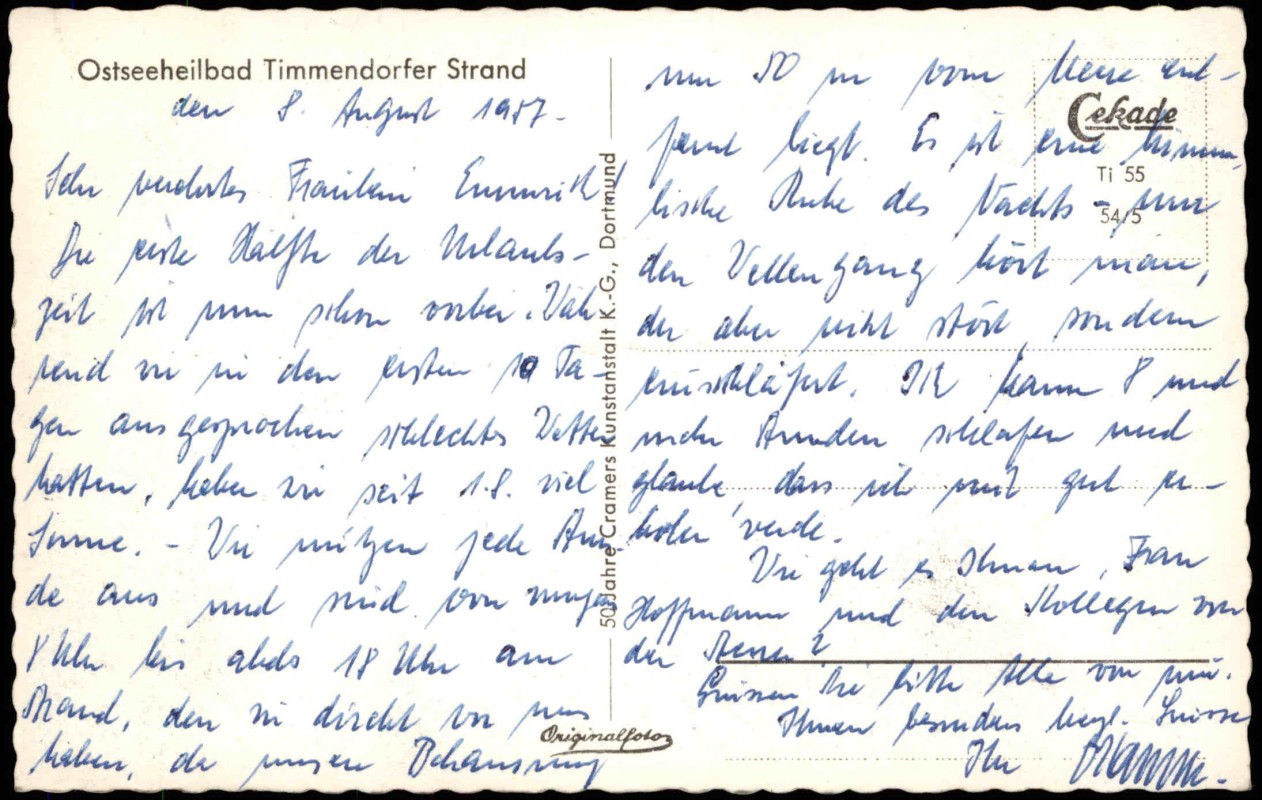 Ostseeheilbad Timmendorfer Strand
den 8. August 1957.
Sehr verehrtes Fräulein Emmrich!
Die erste Hälfte der Urlaubs-
zeit ist nun schon vorbei. Wäh-
rend wir in den ersten 10 Ta-
gen ausgesprochen schlechtes Wetter
hatten, haben wir seit 1.8. viel
Sonne. - Wir nützen jede Stun-
de aus und sind von morgens
8 Uhr bis abds 18 Uhr am
Strand, den wir direkt vor uns
haben, da unsere Behausung
50 Jahre Cramers Kunstanstalt K.-G., Dortmund
Originalfoto
Cekade
Ti 55
54/5
nur 50 m vom Meere ent-
fernt liegt. Es ist eine himm-
lische Ruhe des Nachts - nur
den Wellengang hört man,
der aber nicht stört, sondern
einschläfert. Ich kann 8 und
mehr Stunden schlafen und
glaube, dass ich mich gut er-
holen werde.
Wie geht es Ihnen, Frau
Hoffmann und den Kollegen von
der
Grüssen Sie bitte Alle von mir.
Ihnen besonders herzl. Grüsse
Ihr